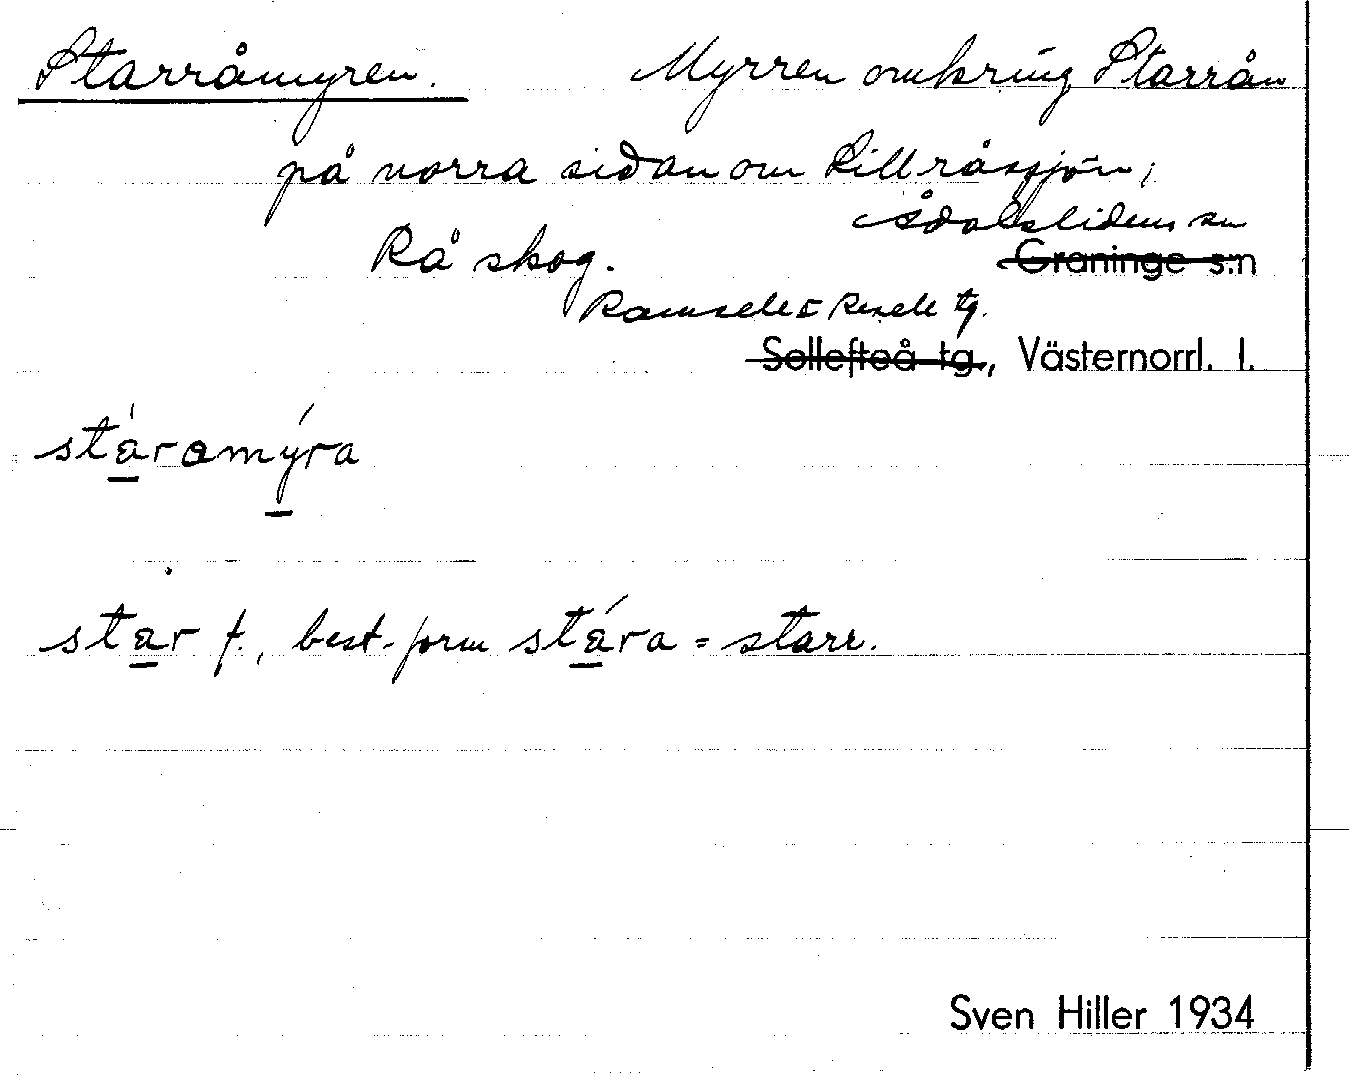 Starråmyren. Myrren omkring Starrån
på norra sidan om Lillråssjön,
Ådalslidens sn
Rå skog. Graninge s:n
Ramsele o Resele tg.
Sollefteå tg., Västernorrl. l.
stáramýra
star f., best. form stára = starr.
Sven Hiller 1934